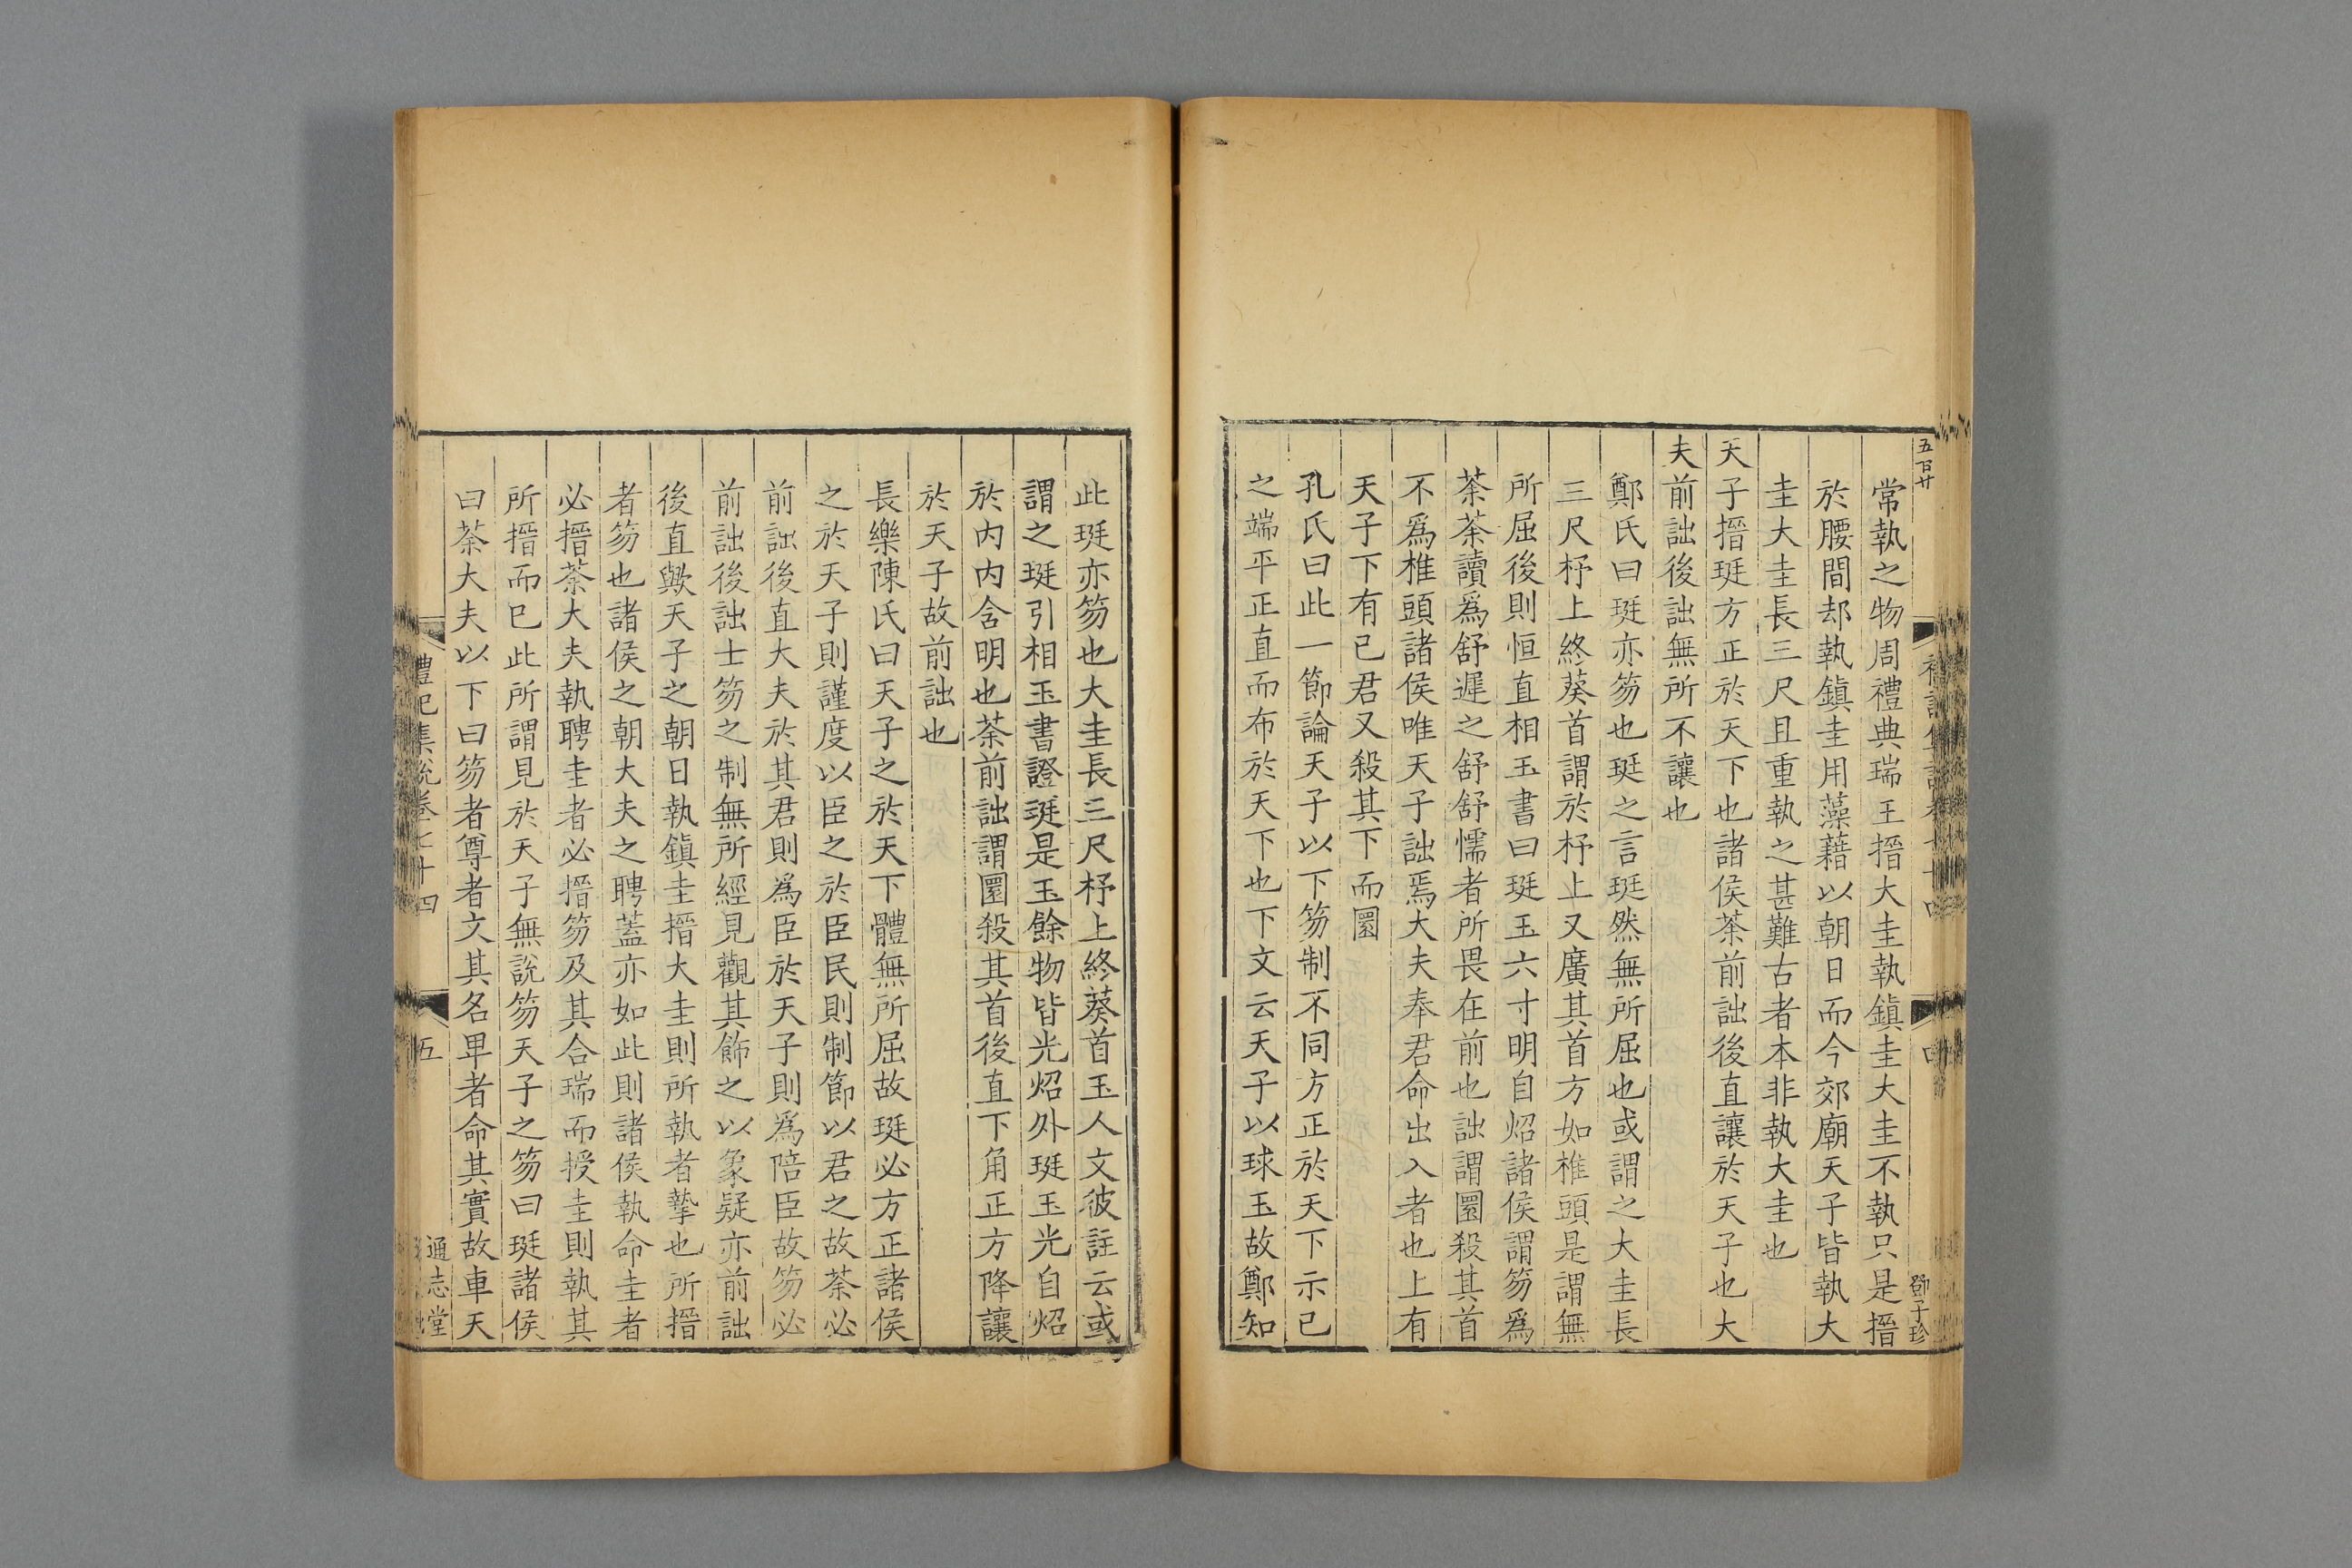 五百廿
常執之物周禮典瑞王搢大圭執鎮圭大圭不執只是搢
於腰間却執鎮圭用藻藉以朝日而今郊廟天子皆執大
圭大圭長三尺且重執之甚難古者本非執大圭也
天子搢珽方正於天下也諸侯荼前詘後直讓於天子也大
夫前詘後詘無所不讓也
鄭氏曰珽亦笏也珽之言珽然無所屈也或謂之大圭長
三尺杼上終葵首謂於杼上又廣其首方如椎頭是謂無
所屈後則恒直相玉書曰珽玉六寸明自炤諸侯謂笏爲
荼荼讀爲舒遲之舒舒懦者所畏在前也詘謂圜殺其首
不爲椎頭諸侯唯天子詘焉大夫奉君命出入者也上有
天子下有已君又殺其下而圜
孔氏曰此一節論天子以下笏制不同方正於天下示已
之端平正直而布於天下也下文云天子以球玉故鄭知
鄧子珍
此珽亦笏也大圭長三尺杼上終葵首玉人文彼註云或
謂之珽引相玉書證珽是玉餘物皆光炤外珽玉光自炤
於内内含明也荼前詘謂圜殺其首後直下角正方降讓
於天子故前詘也
長樂陳氏曰天子之於天下體無所屈故珽必方正諸侯
之於天子則謹度以臣之於臣民則制節以君之故荼必
前詘後直大夫於其君則爲臣於天子則爲陪臣故笏必
前詘後詘士笏之制無所經見觀其飾之以象疑亦前詘
後直歟天子之朝日執鎮圭搢大圭則所執者摯也所搢
者笏也諸侯之朝大夫之聘蓋亦如此則諸侯執命圭者
必搢荼大夫執聘圭者必搢笏及其合瑞而授圭則執其
所搢而已此所謂見於天子無說笏天子之笏曰珽諸侯
曰荼大夫以下曰笏者尊者文其名卑者命其實故車天
禮記集說卷七十四
五
通志堂